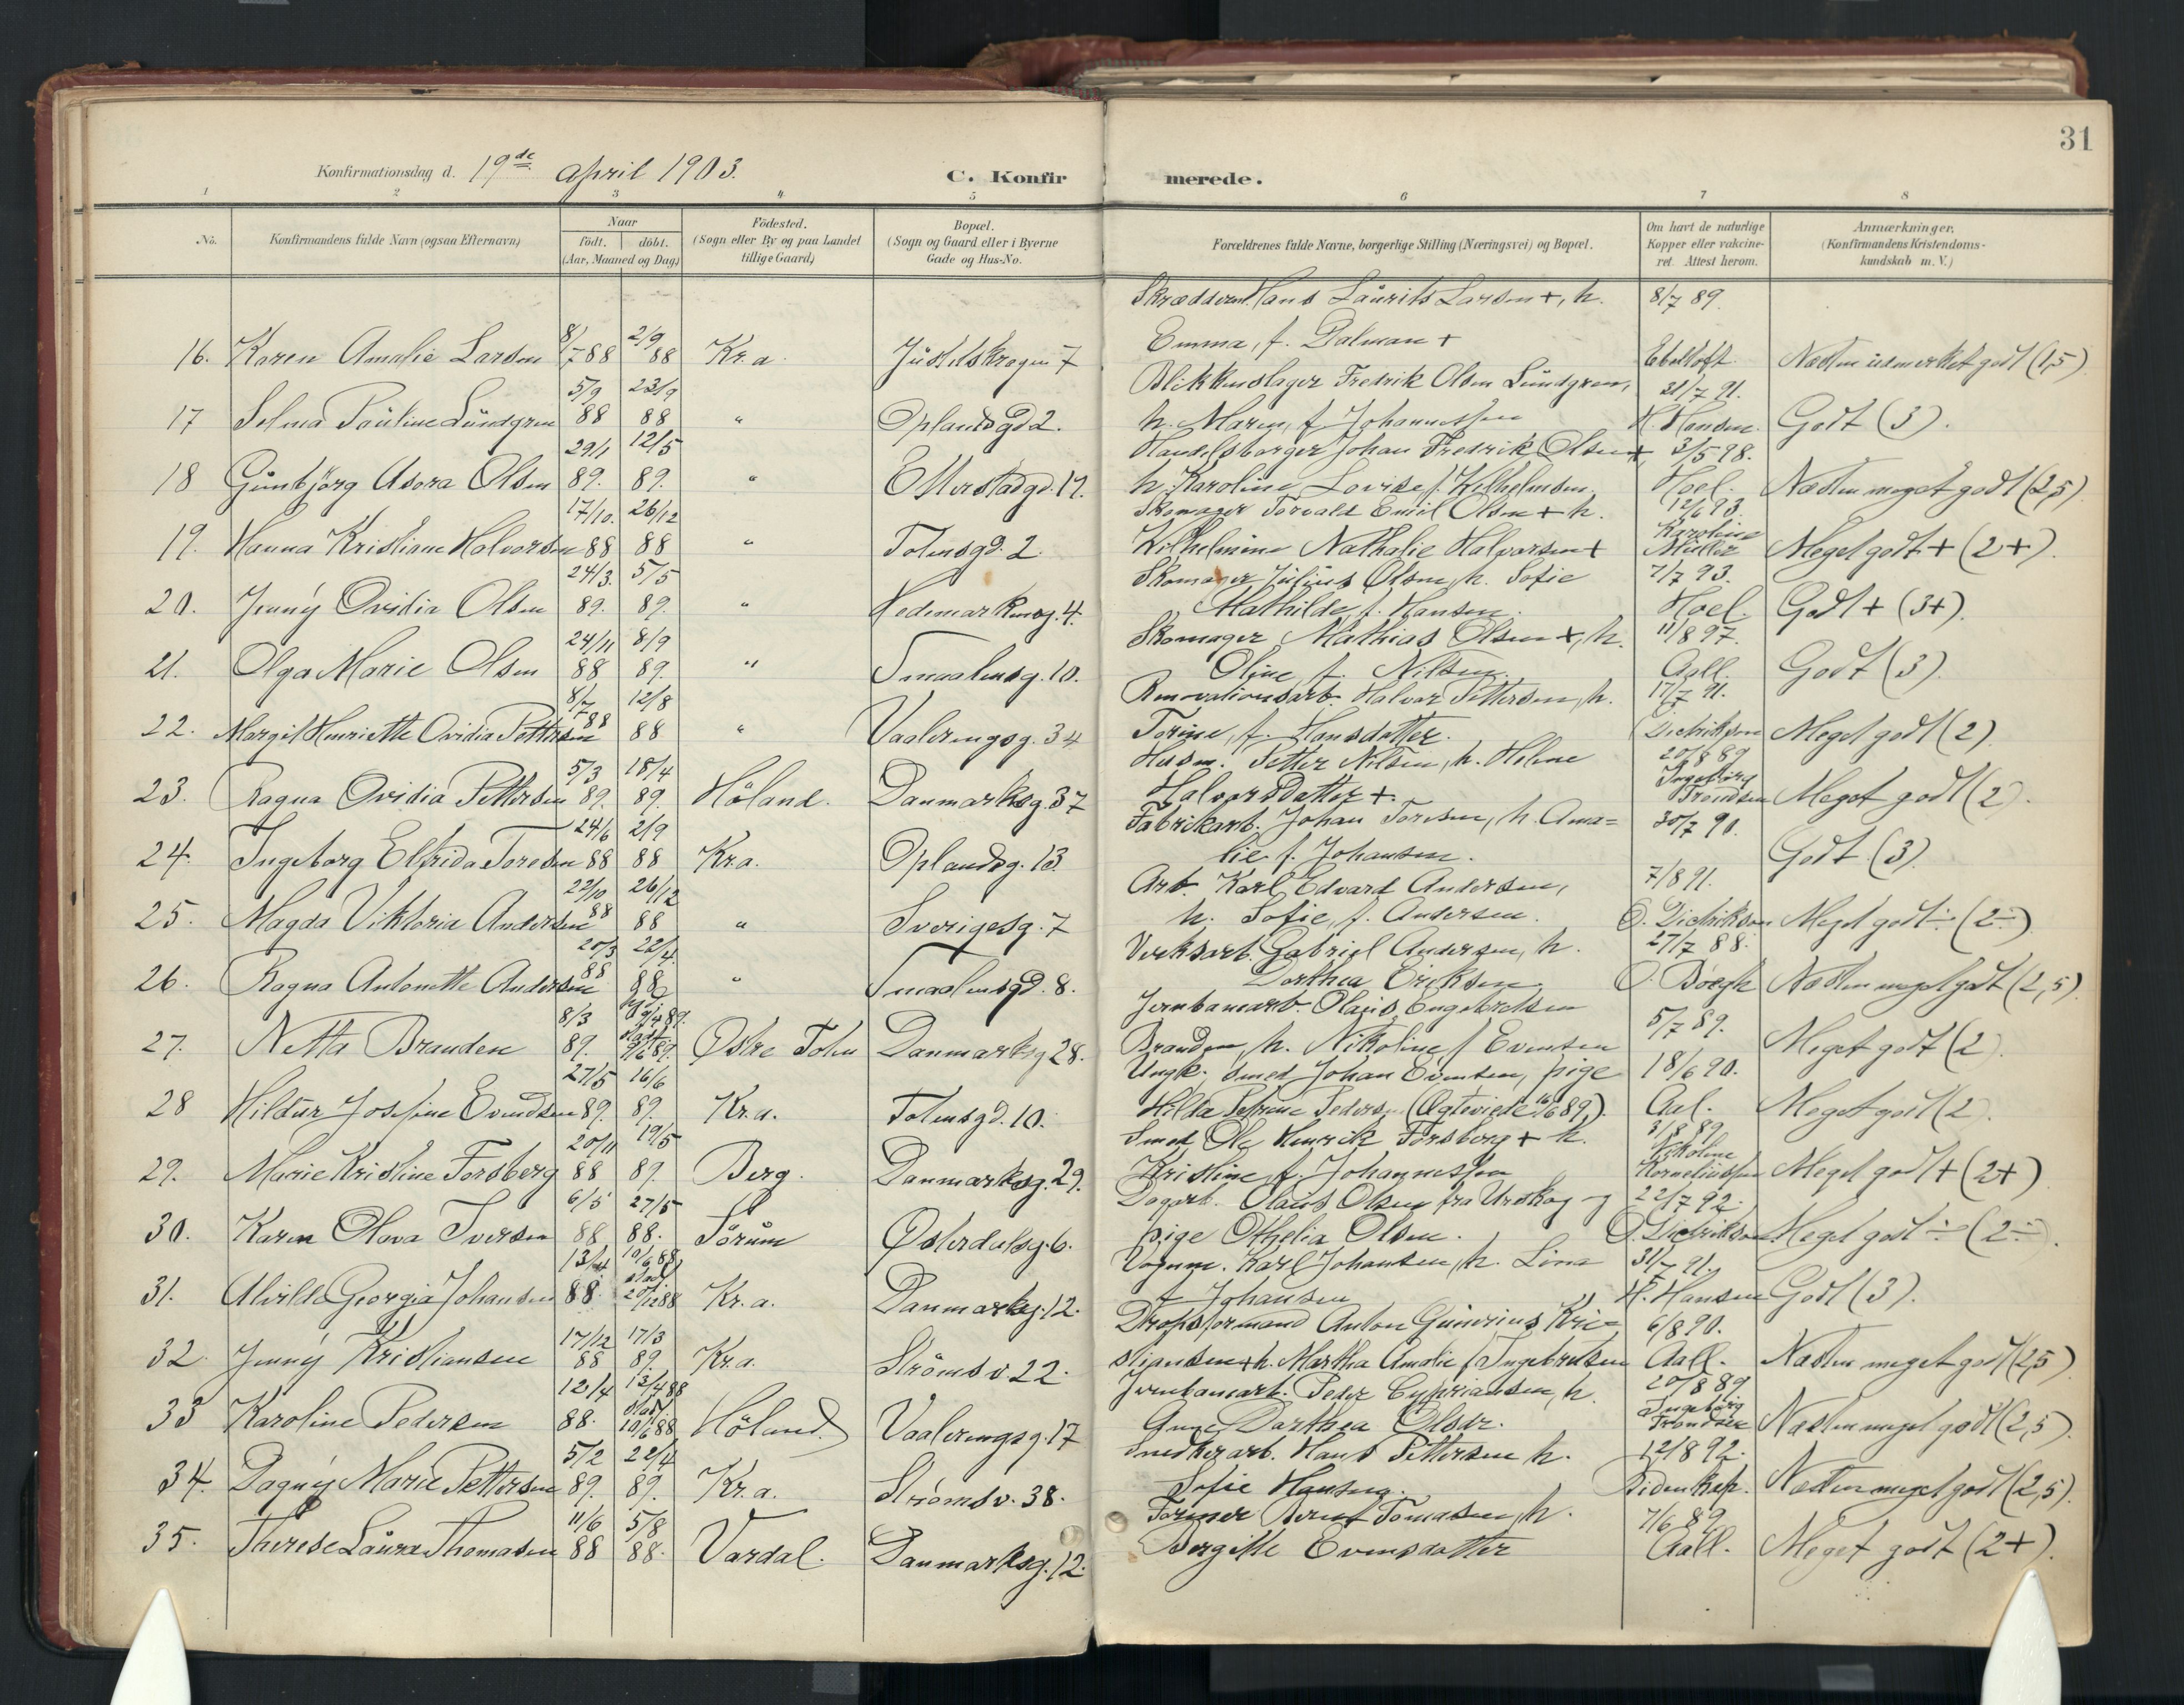 31
Konfirmationsdag d. 19de april 1903.
C. Konfirmerede.
1 2 3 4 5 6 7 8
No.
Konfirmandens fulde Navn (ogsaa Efternavn)
Naar
födt. döbt.
(Aar, Maaned og Dag)
Födested.
(Sogn eller By og paa Landet
tillige Gaard)
Bopæl.
(Sogn og Gaard eller i Byerne
Gade og Hus-No.
Forældrenes fulde Navne, borgerlige Stilling (Næringsvei) og Bopæl.
Om havt de naturlige
Kopper eller vakcine-
ret. Attest herom.
Anmærkninger.
(Konfirmandens Kristendoms-
kundskab m. V.)
Hans Laurits Larsen +, h. 8/7 89.
Emma, f. Dalman +
16. Karen Amalie Larsen 8/7 88 2/9 88 Kr.a. 7 Ebeltoft Næsten udmerket godt (1,5)
Blikkenslager Fredrik Olsen Lundgren, 31/7 91.
17 Selma Pauline Lundgren 5/9 88 23/9 88 " Oplandsgd 2. h. Maren, f. Johannessen H. Hansen. Godt (3).
Handelsborger Johan Fredrik Olsen + 3/5 98.
18 Gunbjörg Asora Olsen 29/1 89. 12/5 89. " Etterstadgd. 17. h. Karoline Lovise f. Wilhelmsen. Hoel. Næsten meget godt (2,5)
Skomager Torvald Emil Olsen + h. 12/6 93.
19. Hanna Kristiane Halvorsen 17/10. 88 26/12 88 " Totensgd. 2. Wilhelmine Nathalie Halvorsen + Karoline Müller Meget godt + (2+).
Skomager Julius Olsen, h. Sofie 7/7 93.
20. Jenny Ovidia Olsen 24/3. 89. 5/5 89. " Hedemarkensg. 4. Mathilde, f. Hansen. Hoel. Godt + (3+).
Skomager Mathias Olsen +, h. 11/8 97.
21. Olga Marie Olsen 24/11 88 8/9 89. " Smaalensg. 10. Oline f. Nilsen. Aall. Godt (3).
Renovationsarb. Halvor Pettersen, h. 17/7 91.
22. Margit Henriette Ovidia Pettersen 8/7 88 12/8 88 " Vaalerengsg. 34 Torine, f. Hansdatter. Diedrikson Meget godt (2).
Husm. Petter Nilsen, h. Helene 20/8 89
23. Ragna Ovidia Pettersen 5/3 89. 18/4 89. Höland. Danmarksg. 37 Halvorsdatter +. Ingeborg Trondsen Meget godt (2).
Fabrikarb. Johan Toresen, h. Ama= 30/7 90.
24. Ingeborg Elfrida Toresen 24/6 88 2/9 88 Kr.a. Oplandsg. 13. lie f. Johansen. Godt (3).
Arb. Karl Edvard Andersen, 7/8 91.
25. Magda Viktoria Andersen 22/10 88 26/12 88 " Sverigesg. 7 h. Sofie, f. Andersen. O. Diedrikson Meget godt ÷ (2÷)
Verksarb. Gabriel Andersen, h. 27/7 88.
26. Ragna Antonette Andersen 20/3 88 22/4. 88 " Smaalensgd. 8. Dorthea Eriksen. O. Boegh Næsten meget godt (2,5).
Jernbanearb. Olaus Engebretsen 5/7 89.
27. Netta Branden 8/3 89. 9/6 89. Östre Toten Danmarksg 28. Branden, h. Nikoline f Evensen Meget godt (2).
Ungk. smed Johan Evensen, pige 18/6 90.
28 Hildur Josefine Evendsen 27/5 89. 16/6 89. Kr.a. Totensgd. 10. Hilda Petrine Peders. (Ægteviede 16/6 89). Aal. Meget godt (2).
Smed Ole Henrik Forsberg + h. 3/8 89
29. Marie Kristine Forsberg 20/11 88 19/5 89. Berg. Danmarksg. 29. Kristine, f. Johannessen Nikoline Korneliussen Meget godt + (2+)
Dagarb. Olaus Olsen fra Urskog og 22/7 92.
30. Karen Olava Iversen 6/5 88 27/5 88. Sörum Österdalsg. 6. pige Othelia Olsen. O. Diedrikson Meget godt ÷ (2÷).
Vognm. Karl Johansen, h. Lina 31/7 91.
31. Alvilde Georgia Johansen 13/4 88. 10/6 88 stadf 26/12 88 Kr.a. Danmarksg. 12. f. Johansen H. Hansen Godt (3).
Dropsformand Anton Gunerius Kri= 6/8 90.
32. Jenny Kristiansen 17/12 88 17/3 89. Kr.a. Strömsv. 22. stiansen + h. Martha Amalie f Ingebretsen Aall. Næsten meget godt (2,5)
Jernbanearb. Peder Cypriansen, h. 20/8 89
33 Karoline Pedersen 12/4 88. 13/4 88 stadf 10/6 88 Höland. Vaalerengsg. 17 Anne Dorthea Olsdr. Ingeborg Trondsen Næsten meget godt (2,5).
Snedkerarb. Hans Pettersen h. 12/8 92.
34. Dagny Marie Pettersen 5/2 89. 22/4 89. Kr.a. Strömsv. 38. Sofie Hansen. Bidenkap. Næsten meget godt (2,5).
Former Bernt Tomasen, h. 7/6 89.
35. Therese Laura Thomasen 11/6 88 5/8 88. Vardal. Danmarksg. 12. Bergitte Evensdatter Aall. Meget godt (2+).